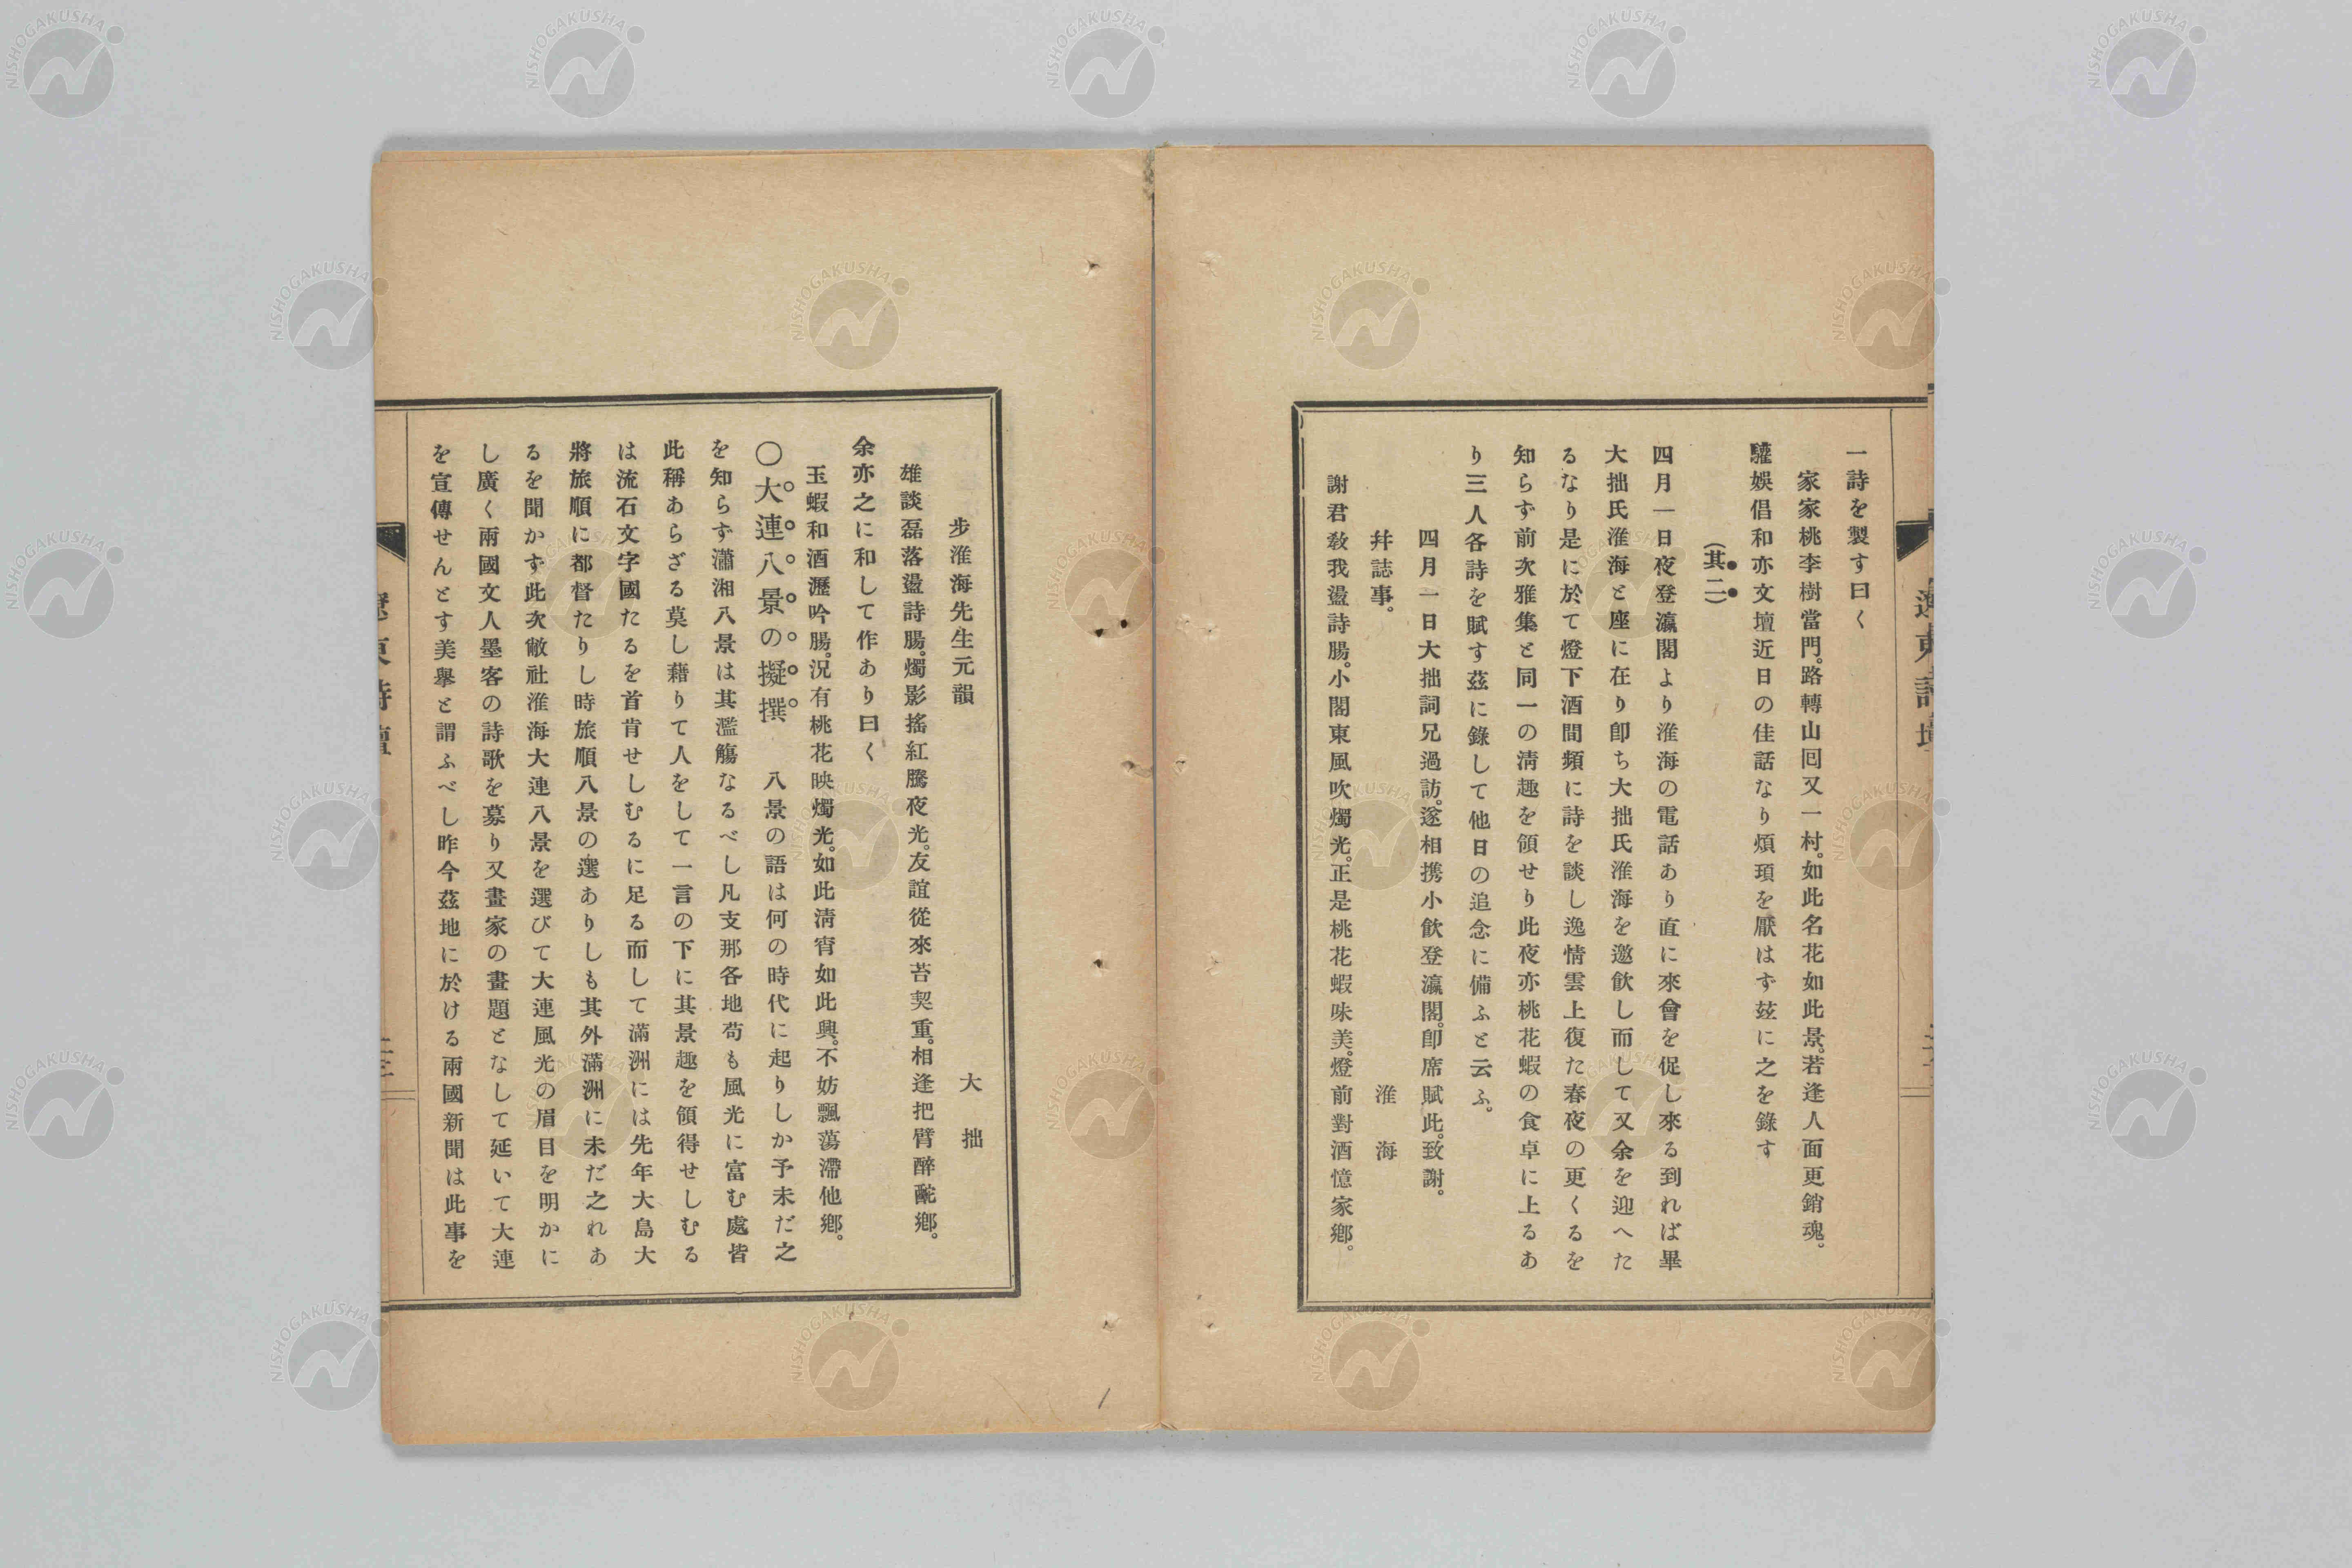 一詩を製す曰く
家家桃李樹當門。路轉山囘又一村。如此名花如此景。若逢人面更銷魂。
驩娛倡和亦文壇近日の佳話なり煩頊を厭はず玆に之を錄す
(其二)
四月一日夜登瀛閣より淮海の電話あり直に來會を促し來る到れば畢
大拙氏淮海と座に在り卽ち大拙氏淮海を邀飮し而して又余を迎へた
るなり是に於て燈下酒間頻に詩を談し逸情雲上復た春夜の更くるを
知らず前次雅集と同一の淸趣を領せり此夜亦桃花蝦の食卓に上るあ
り三人各詩を賦す茲に錄して他日の追念に備ふと云ふ。
四月一日大拙詞兄過訪。遂相携小飮登瀛閣。卽席賦此。致謝。
幷誌事。 淮海
謝君敎我盪詩腸。小閣東風吹燭光。正是桃花蝦味美。燈前對酒憶家鄕。
步淮海先生元韻 大拙
雄談磊落盪詩腸。燭影搖紅騰夜光。友誼從來苔契重。相逢把臂醉酡鄕。
余亦之に和して作あり曰く
玉蝦和酒瀝吟腸。況有桃花映燭光。如此淸宵如此興。不妨飄蕩滯他鄕。
○大連八景の擬撰 八景の語は何の時代に起りしか予未だ之
を知らず瀟湘八景は其濫觴なるべし凡支那各地苟も風光に富む處皆
此稱あらざる莫し藉りて人をして一言の下に其景趣を領得せしむる
は流石文字國たるを首肯せしむるに足る而して滿洲には先年大島大
將旅順に都督たりし時旅順八景の選ありしも其外滿洲に未だ之れあ
るを聞かず此次敝社淮海大連八景を選びて大連風光の眉目を明かに
し廣く兩國文人墨客の詩歌を募り又畫家の畫題となして延いて大連
を宣傳せんとす美擧と謂ふべし昨今茲地に於ける兩國新聞は此事を
遼東詩壇
NISHOGAKUSHA